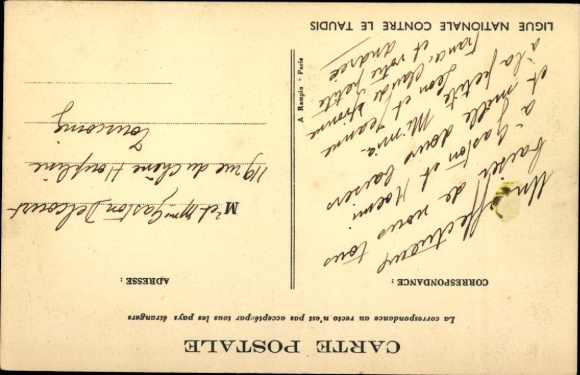 CARTE POSTALE
La correspondance au recto n'est pas acceptée par tous les pays étrangers
CORRESPONDANCE :
Un affectueux
baiser de nous tous
à Gaston et Noemi
et mille doux baisers
à la petite Mimia.
Leon et Jeanne
France, Claude Yvonne
et votre petite
Andrée
LIGUE NATIONALE CONTRE LE TAUDIS
A Rampin - Paris
ADRESSE :
Mr et Mme Gaston Delcourt
119 rue du Chêne Houpline
Tourcoing